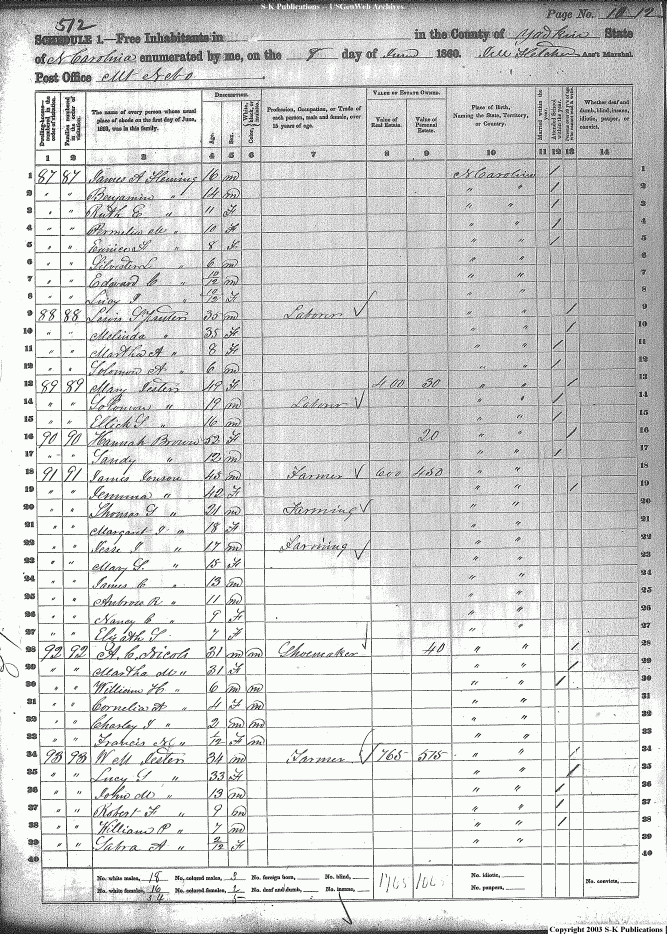 S-K Publications -- USGenWeb Archives.
512
Page No. 10 12
SCHEDULE 1.—Free Inhabitants in in the County of Yadkin State
of N Carolina enumerated by me, on the 8 day of June 1860. Fletcher Ass't Marshal.
Post Office Mt Nebo
Dwelling-houses numbered in the order of visitation.
Families numbered in the order of visitation.
The name of every person whose usual place of abode on the first day of June, 1860, was in this family.
DESCRIPTION.
Age. Sex. Color,
Profession, Occupation, or Trade of each person, male and female, over 15 years of age.
VALUE OF ESTATE OWNED.
Value of Real Estate. Value of Personal Estate.
Place of Birth, Naming the State, Territory, or Country.
Married within the year.
Attended School within the year.
Whether deaf and dumb, blind, insane, idiotic, pauper, or convict.
1 2 3 4 5 6 7 8 9 10 11 12 13 14
1 87 87 James A Fleming 16 m N Carolina / 1
2 " " Benjamin " 14 m " " / 2
3 " " Ruth E " 11 F " " / 3
4 " " Permelia M " 10 F " " / 4
5 " " Eunice " 8 F " " / 5
6 " " Silvester L " 6 m " " 6
7 " " Edward C " 10/12 m " " 7
8 " " Lucy J " 10/12 F " " 8
9 88 88 Lewis 35 m Laborer " " / 9
10 " " Melinda " 35 F " " / 10
11 " " Martha A " 8 F " " / 11
12 " " Solomon A " 6 m " " / 12
13 89 89 Mary Jester 49 F 400 30 " " / 13
14 " " Solomon " 19 m Laborer " " / 14
15 " " Ellick S " 16 m " " / 15
16 90 90 Hannah Brown 52 F 20 " " / 16
17 " " Sandy " 12 m " " / 17
18 91 91 James 45 m Farmer 600 450 " " 18
19 " " Jemima " 42 F " " / 19
20 " " Thomas G " 21 m Farming " " 20
21 " " Margaret J " 18 F " " 21
22 " " Jesse " 17 m Farming " " 22
23 " " Mary S. " 15 F " " 23
24 " " James C " 13 m " " 24
25 " " Ambrose R " 11 m " " 25
26 " " Nancy C " 9 F " " 26
27 " " Elizath S. 7 F " " 27
28 92 92 A. C. Nicols 31 m m Shoemaker 40 " " / 28
29 " " Martha M " 31 F " " / 29
30 " " William H " 6 m m " " / 30
31 " " Cornelia A " 4 F m " " 31
32 " " Charley J " 2 m m " " 32
33 " " Francis " F m " " 33
34 93 93 W M Jester 34 m Farmer 765 575 " " / 34
35 " " Lucy " 33 F " " / 35
36 " " John M " 13 m " " / 36
37 " " Robert F " 9 m " " / 37
38 " " William P " 7 m " " / 38
39 " " Sabra A " 2/12 F " " 39
40 40
No. white males, 18 No. colored males, 3 No. foreign born, No. blind, 1765 No. idiotic, No. convicts,
No. white females, 16 No. colored females, 2 No. deaf and dumb, No. insane, No. paupers,
34 5
Copyright 2003 S-K Publications